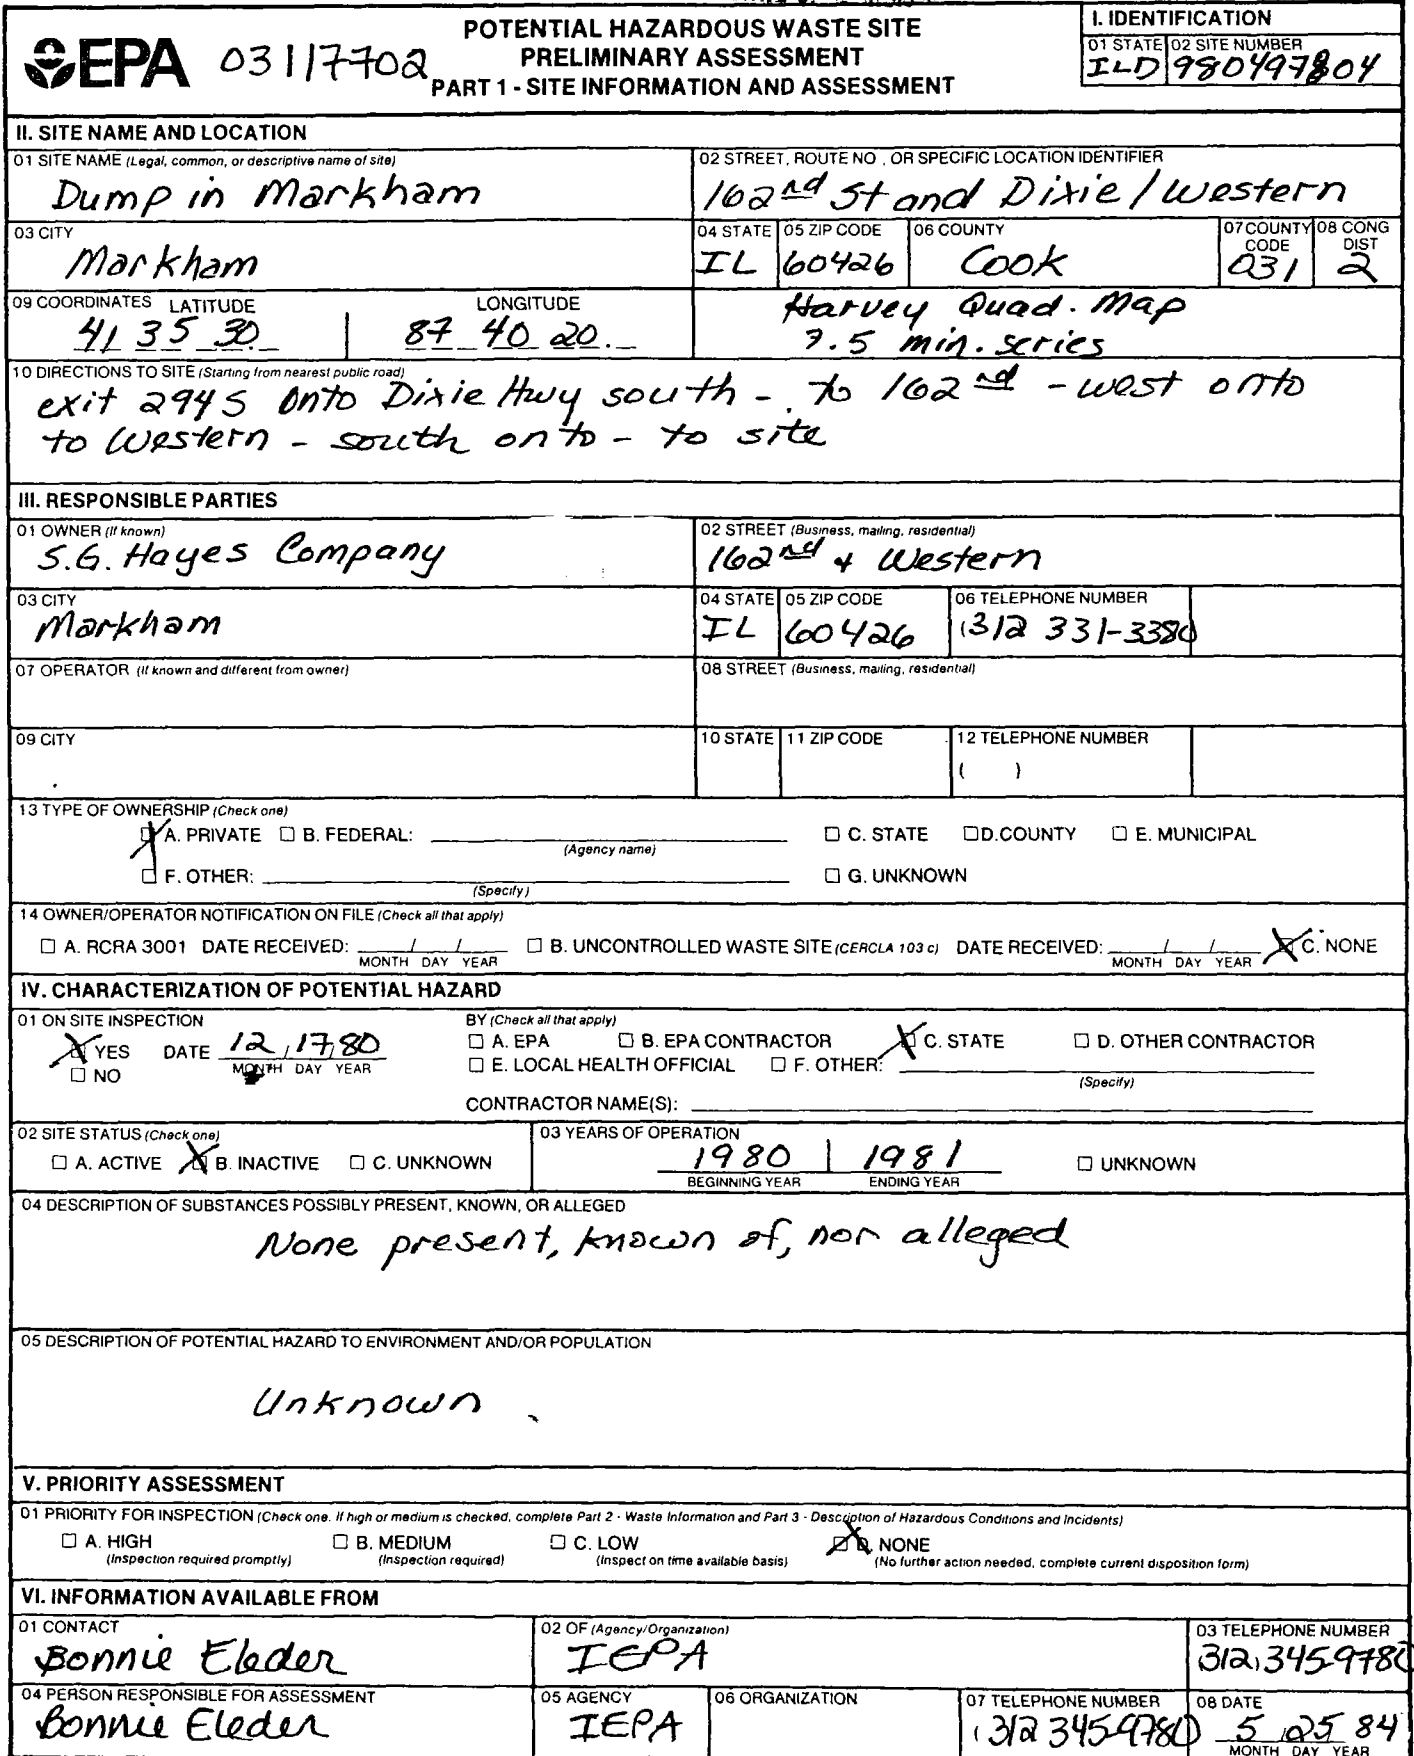 EPA 03117702
POTENTIAL HAZARDOUS WASTE SITE
PRELIMINARY ASSESSMENT
PART 1 - SITE INFORMATION AND ASSESSMENT
I. IDENTIFICATION
01 STATE 02 SITE NUMBER
ILD 980497804
II. SITE NAME AND LOCATION
01 SITE NAME (Legal, common, or descriptive name of site) 02 STREET, ROUTE NO., OR SPECIFIC LOCATION IDENTIFIER
Dump in Markham 162nd St and Dixie/Western
03 CITY 04 STATE 05 ZIP CODE 06 COUNTY 07 COUNTY CODE 08 CONG DIST
Markham IL 60426 Cook 031 2
09 COORDINATES LATITUDE LONGITUDE
41 35 30 87 40 20.
Harvey Quad. Map
7.5 min. series
10 DIRECTIONS TO SITE (Starting from nearest public road)
exit 294 S onto Dixie Hwy south - to 162nd - west onto
to Western - south onto - to site
III. RESPONSIBLE PARTIES
01 OWNER (If known) 02 STREET (Business, mailing, residential)
S.G. Hayes Company 162nd + Western
03 CITY 04 STATE 05 ZIP CODE 06 TELEPHONE NUMBER
Markham IL 60426 (312 331-3380
07 OPERATOR (If known and different from owner) 08 STREET (Business, mailing, residential)
09 CITY 10 STATE 11 ZIP CODE 12 TELEPHONE NUMBER
( )
13 TYPE OF OWNERSHIP (Check one)
A. PRIVATE B. FEDERAL: C. STATE D. COUNTY E. MUNICIPAL
(Agency name)
F. OTHER: G. UNKNOWN
(Specify)
14 OWNER/OPERATOR NOTIFICATION ON FILE (Check all that apply)
A. RCRA 3001 DATE RECEIVED: / / B. UNCONTROLLED WASTE SITE (CERCLA 103 c) DATE RECEIVED: / / C. NONE
MONTH DAY YEAR MONTH DAY YEAR
IV. CHARACTERIZATION OF POTENTIAL HAZARD
01 ON SITE INSPECTION BY (Check all that apply)
YES DATE 12/17/80 A. EPA B. EPA CONTRACTOR C. STATE D. OTHER CONTRACTOR
NO MONTH DAY YEAR E. LOCAL HEALTH OFFICIAL F. OTHER:
(Specify)
CONTRACTOR NAME(S):
02 SITE STATUS (Check one) 03 YEARS OF OPERATION
A. ACTIVE B. INACTIVE C. UNKNOWN 1980 | 1981 UNKNOWN
BEGINNING YEAR ENDING YEAR
04 DESCRIPTION OF SUBSTANCES POSSIBLY PRESENT, KNOWN, OR ALLEGED
None present, known of, nor alleged
05 DESCRIPTION OF POTENTIAL HAZARD TO ENVIRONMENT AND/OR POPULATION
Unknown
V. PRIORITY ASSESSMENT
01 PRIORITY FOR INSPECTION (Check one. If high or medium is checked, complete Part 2 - Waste Information and Part 3 - Description of Hazardous Conditions and Incidents)
A. HIGH B. MEDIUM C. LOW D. NONE
(Inspection required promptly) (Inspection required) (Inspect on time available basis) (No further action needed, complete current disposition form)
VI. INFORMATION AVAILABLE FROM
01 CONTACT 02 OF (Agency/Organization) 03 TELEPHONE NUMBER
Bonnie Eleder IEPA 312, 345-9780
04 PERSON RESPONSIBLE FOR ASSESSMENT 05 AGENCY 06 ORGANIZATION 07 TELEPHONE NUMBER 08 DATE
Bonnie Eleder IEPA (312 345-9780 5 25 84
MONTH DAY YEAR